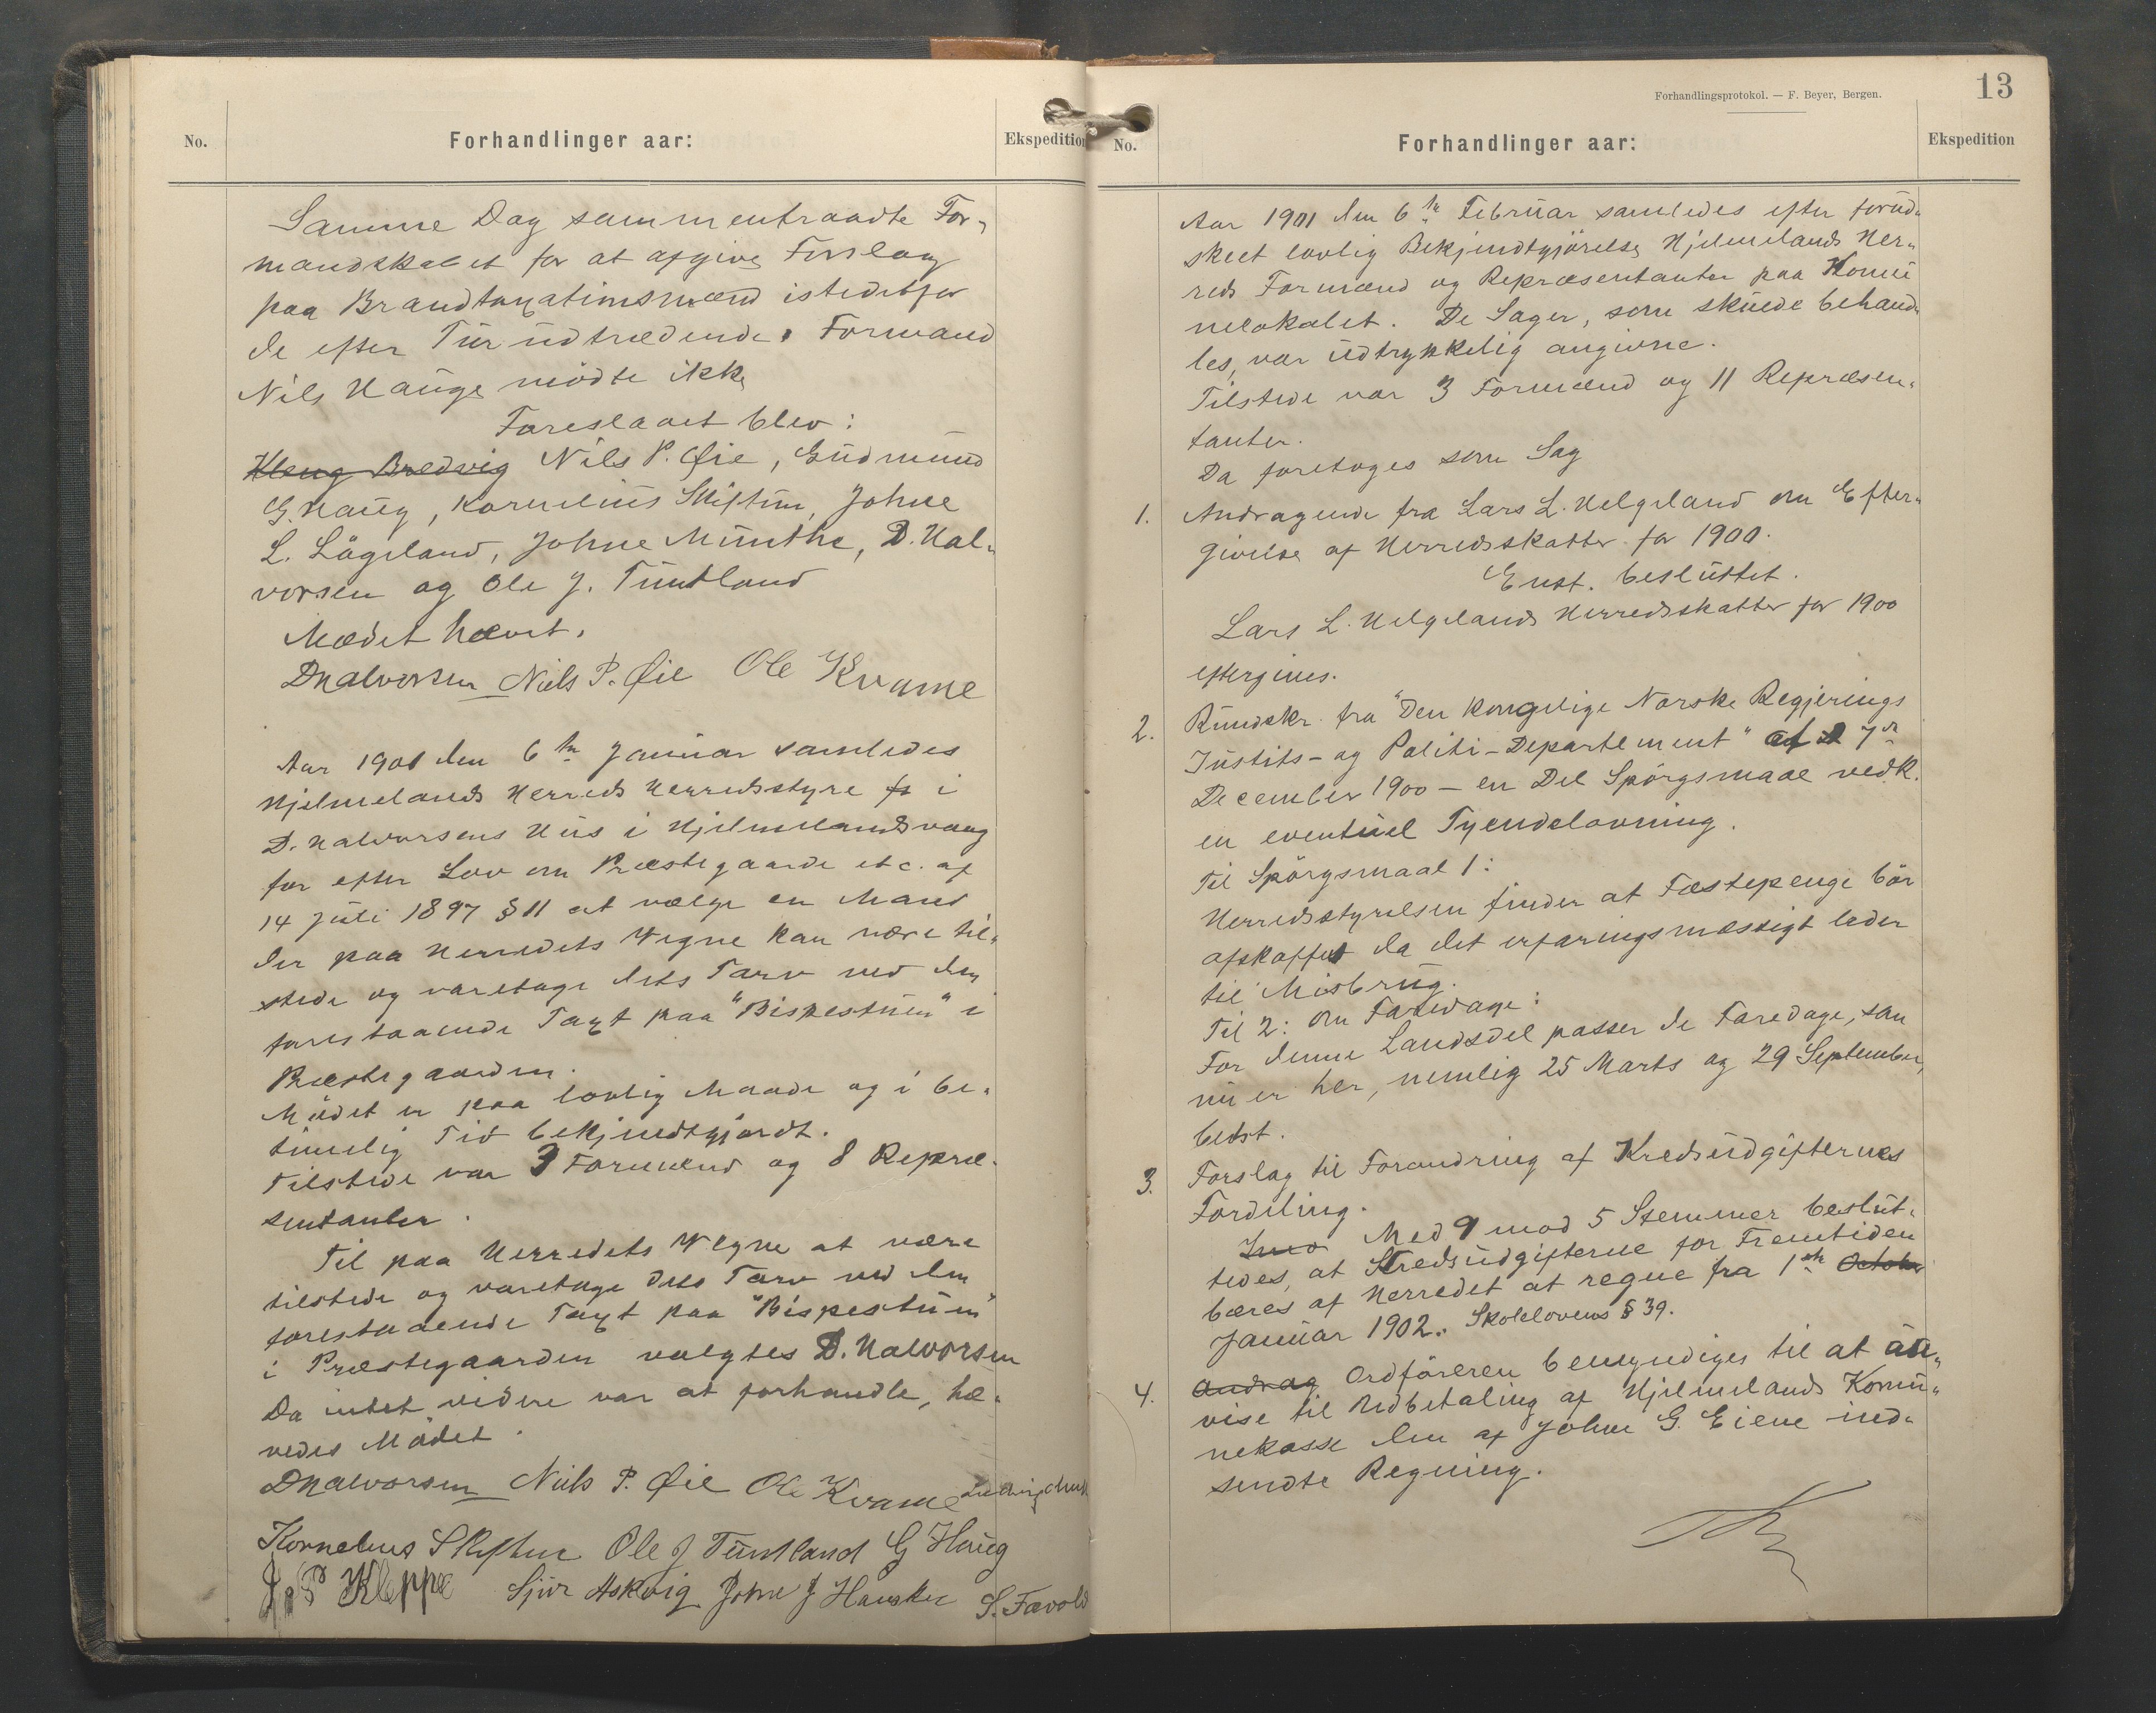 No.
Forhandlinger aar:
Ekspedition
Samme Dag sammentraadte For-
mandskabet for at afgive Forslag
paa Brandtaxationsmænd istedetfor
de efter Tur udtrædende. Formand
Nils Hauge mödte ikke
Foreslaaet blev:
Kleng Bredvig Nils P. Øie, Gudmund
G. Haug, Kornelius Skiftun, Johne
L. Lågeland, Johne Munthe, D. Hal-
vorsen og Ole J. Tuntland
Mødet hævet.
DHalvorsen Niels P. Øie Ole Kvame
Aar 1901 den 6te Januar samledes
Hjelmelands Herreds Herredsstyre fr i
D. Halvorsens Hus i Hjelmelandsvaag
for efter Lov om Præstegaarde etc. af
14 Juli 1897 § 11 at vælge en Mand
der paa Herredets Vegne kan være til-
stede og varetage dets Tarv ved den
forestaaende Taxt paa "Bispestuen" i
Præstegaarden.
Mödet er paa lovlig Maade og i be-
timelig Tid bekjendtgjordt.
Tilstede var 3 Formænd og 8 Repræ-
sentanter.
Til paa Herredets Vegne at være
tilstede og varetage dets Tarv ved den
forestaaende Taxt paa "Bispestuen"
i Præstegaarden valgtes D. Halvorsen
Da intet videre var at forhandle, hæ-
vedes Mödet.
DHalvorsen Niels P. Øie Ole Kvame
Kornelius Skiftun Ole J Tuntland G Haug
J. P Kleppe Sjur Askvig Johne J Hauske S. Fævold
Forhandlingsprotokol. — F. Beyer, Bergen.
13
No.
Forhandlinger aar:
Ekspedition
Aar 1901 den 6te Februar samledes efter forud-
skeet lovlig Bekjendtgjörelse Hjelmelands Her-
reds Formænd og Repræsentanter paa Komu
nelokalet. De Sager, som skulde behand-
les, var udtrykkelig angivne.
Tilstede var 3 Formænd og 11 Repræsen-
tanter.
Da foretoges som Sag
1. Andragende fra Lars L. Helgeland om Efter-
givelse af Herredsskatter for 1900.
Enst. besluttet.
Lars L. Helgelands Herredsskatter for 1900
eftergives.
2. Rundskr. fra "Den Kongelige Norske Regjerings
Justits- og Politi-Departement" af 7de
December 1900 - en Del Spörgsmaal vedk.
en eventuel Tyendelovning.
Til Spörgsmaal 1:
Herredsstyrelsen finder at Fæstepenge bör
afskaffes da det erfaringsmæssigt leder
til Misbrug.
Til 2: Om Faredage:
For denne Landsdel passer de Faredage, som
nu er her, nemlig 25 Marts og 29 September,
bedst.
3. Forslag til Forandring af Kredsudgifternes
Fordeling.
Med 9 mod 5 Stemmer beslut-
tedes, at Kredsudgifterne for Fremtiden
bæres af Herredet at regne fra 1ste October
Januar 1902. Skolelovens § 39.
4. Andrag Ordföreren bemyndiges til at an-
vise til Udbetaling af Hjelmelands Komu-
nekasse den af Johne G. Eiene ind-
sendte Regning.